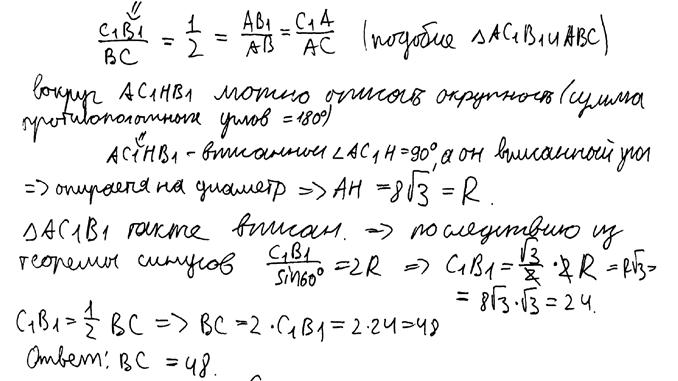 ⇓
C₁B₁/BC = 1/2 = AB₁/AB = C₁A/AC (подобие △AC₁B₁ и ABC)
вокруг AC₁HB₁ можно описать окружность (сумма
противоположных углов = 180°)
⇓
AC₁HB₁ - вписанный ∠AC₁H = 90°, а он вписанный угол
=> опирается на диаметр => AH = 8√3 = R.
△AC₁B₁ также вписан. => по следствию из
теоремы синусов C₁B₁/sin60° = 2R => C₁B₁ = √3/2 · 2 R = R√3 =
= 8√3 · √3 = 24.
C₁B₁ = 1/2 BC => BC = 2 · C₁B₁ = 2 · 24 = 48
Ответ: BC = 48.